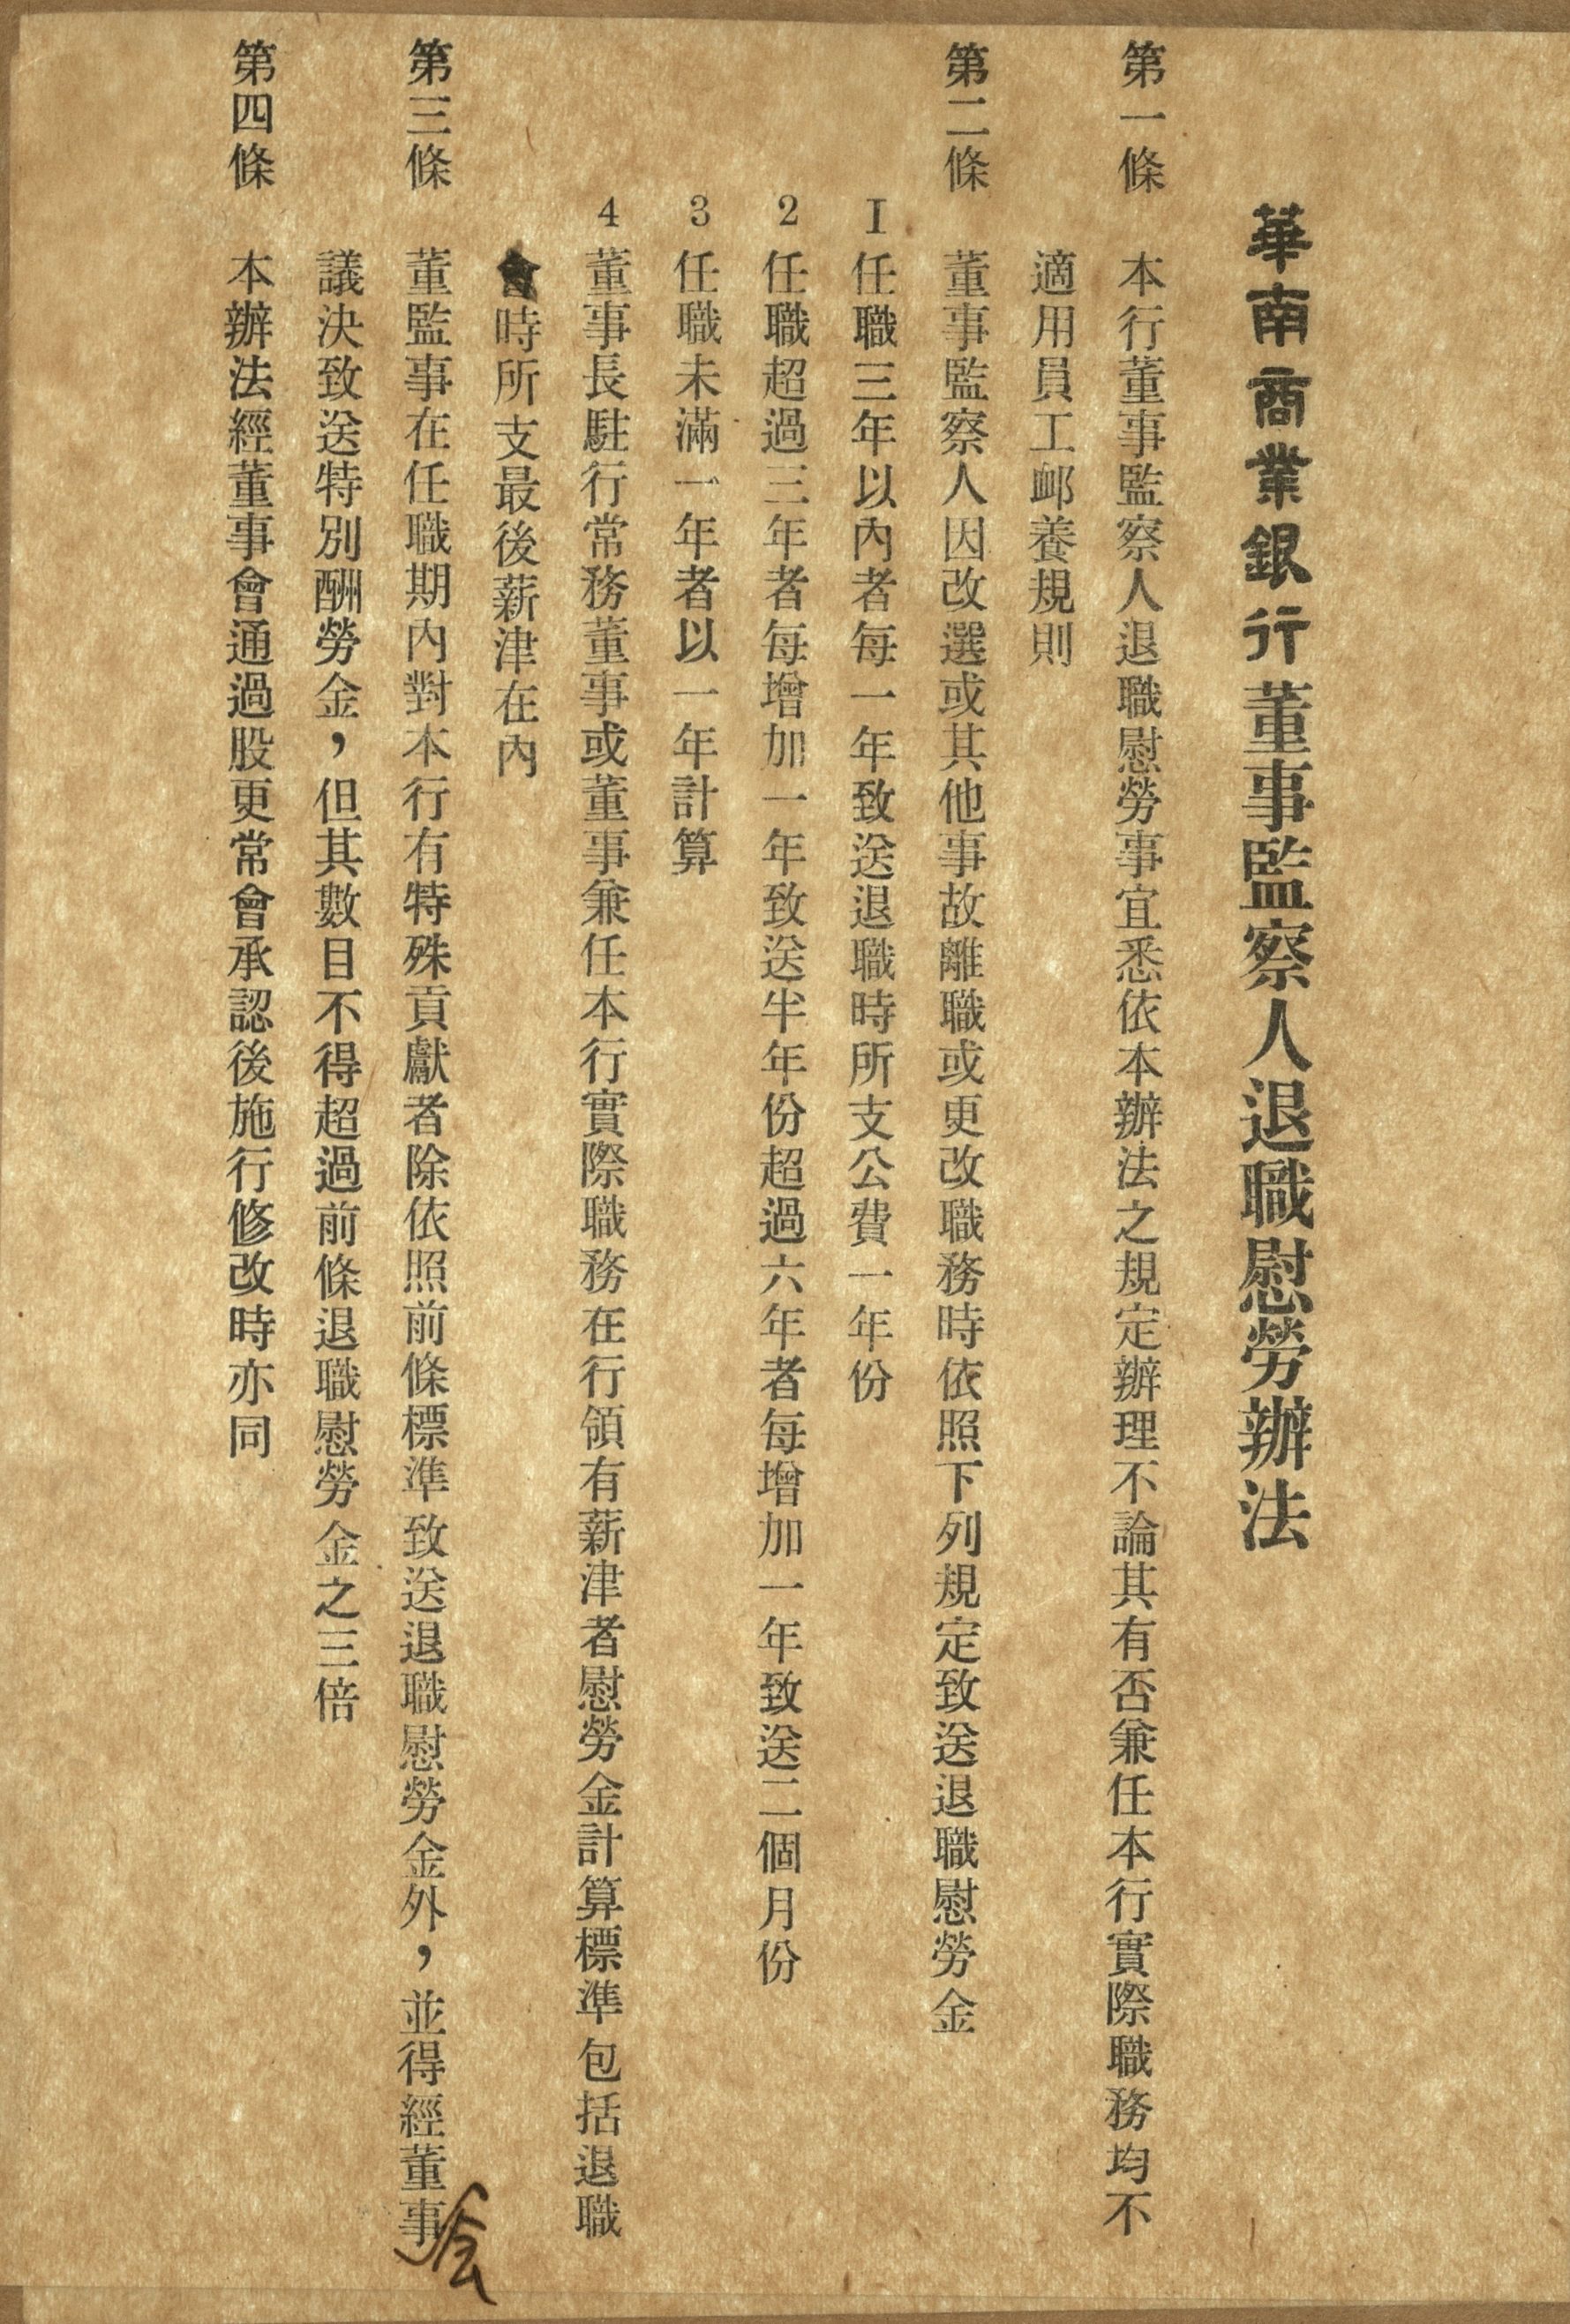 華南商業銀行董事監察人退職慰勞辦法
第一條　本行董事監察人退職慰勞事宜悉依本辦法之規定辦理不論其有否兼任本行實際職務均不
適用員工邺養規則
第二條　董事監察人因改選或其他事故離職或更改職務時依照下列規定致送退職慰勞金
1 任職三年以內者每一年致送退職時所支公費一年份
2 任職超過三年者每增加一年致送半年份超過六年者每增加一年致送二個月份
3 任職未滿一年者以一年計算
4 董事長駐行常務董事或董事兼任本行實際職務在行領有薪津者慰勞金計算標準包括退職
會時所支最後薪津在內
第三條　董監事在任職期內對本行有特殊貢獻者除依照前條標準致送退職慰勞金外，並得經董事
会
議決致送特別酬勞金，但其數目不得超過前條退職慰勞金之三倍
第四條　本辦法經董事會通過股更常會承認後施行修改時亦同